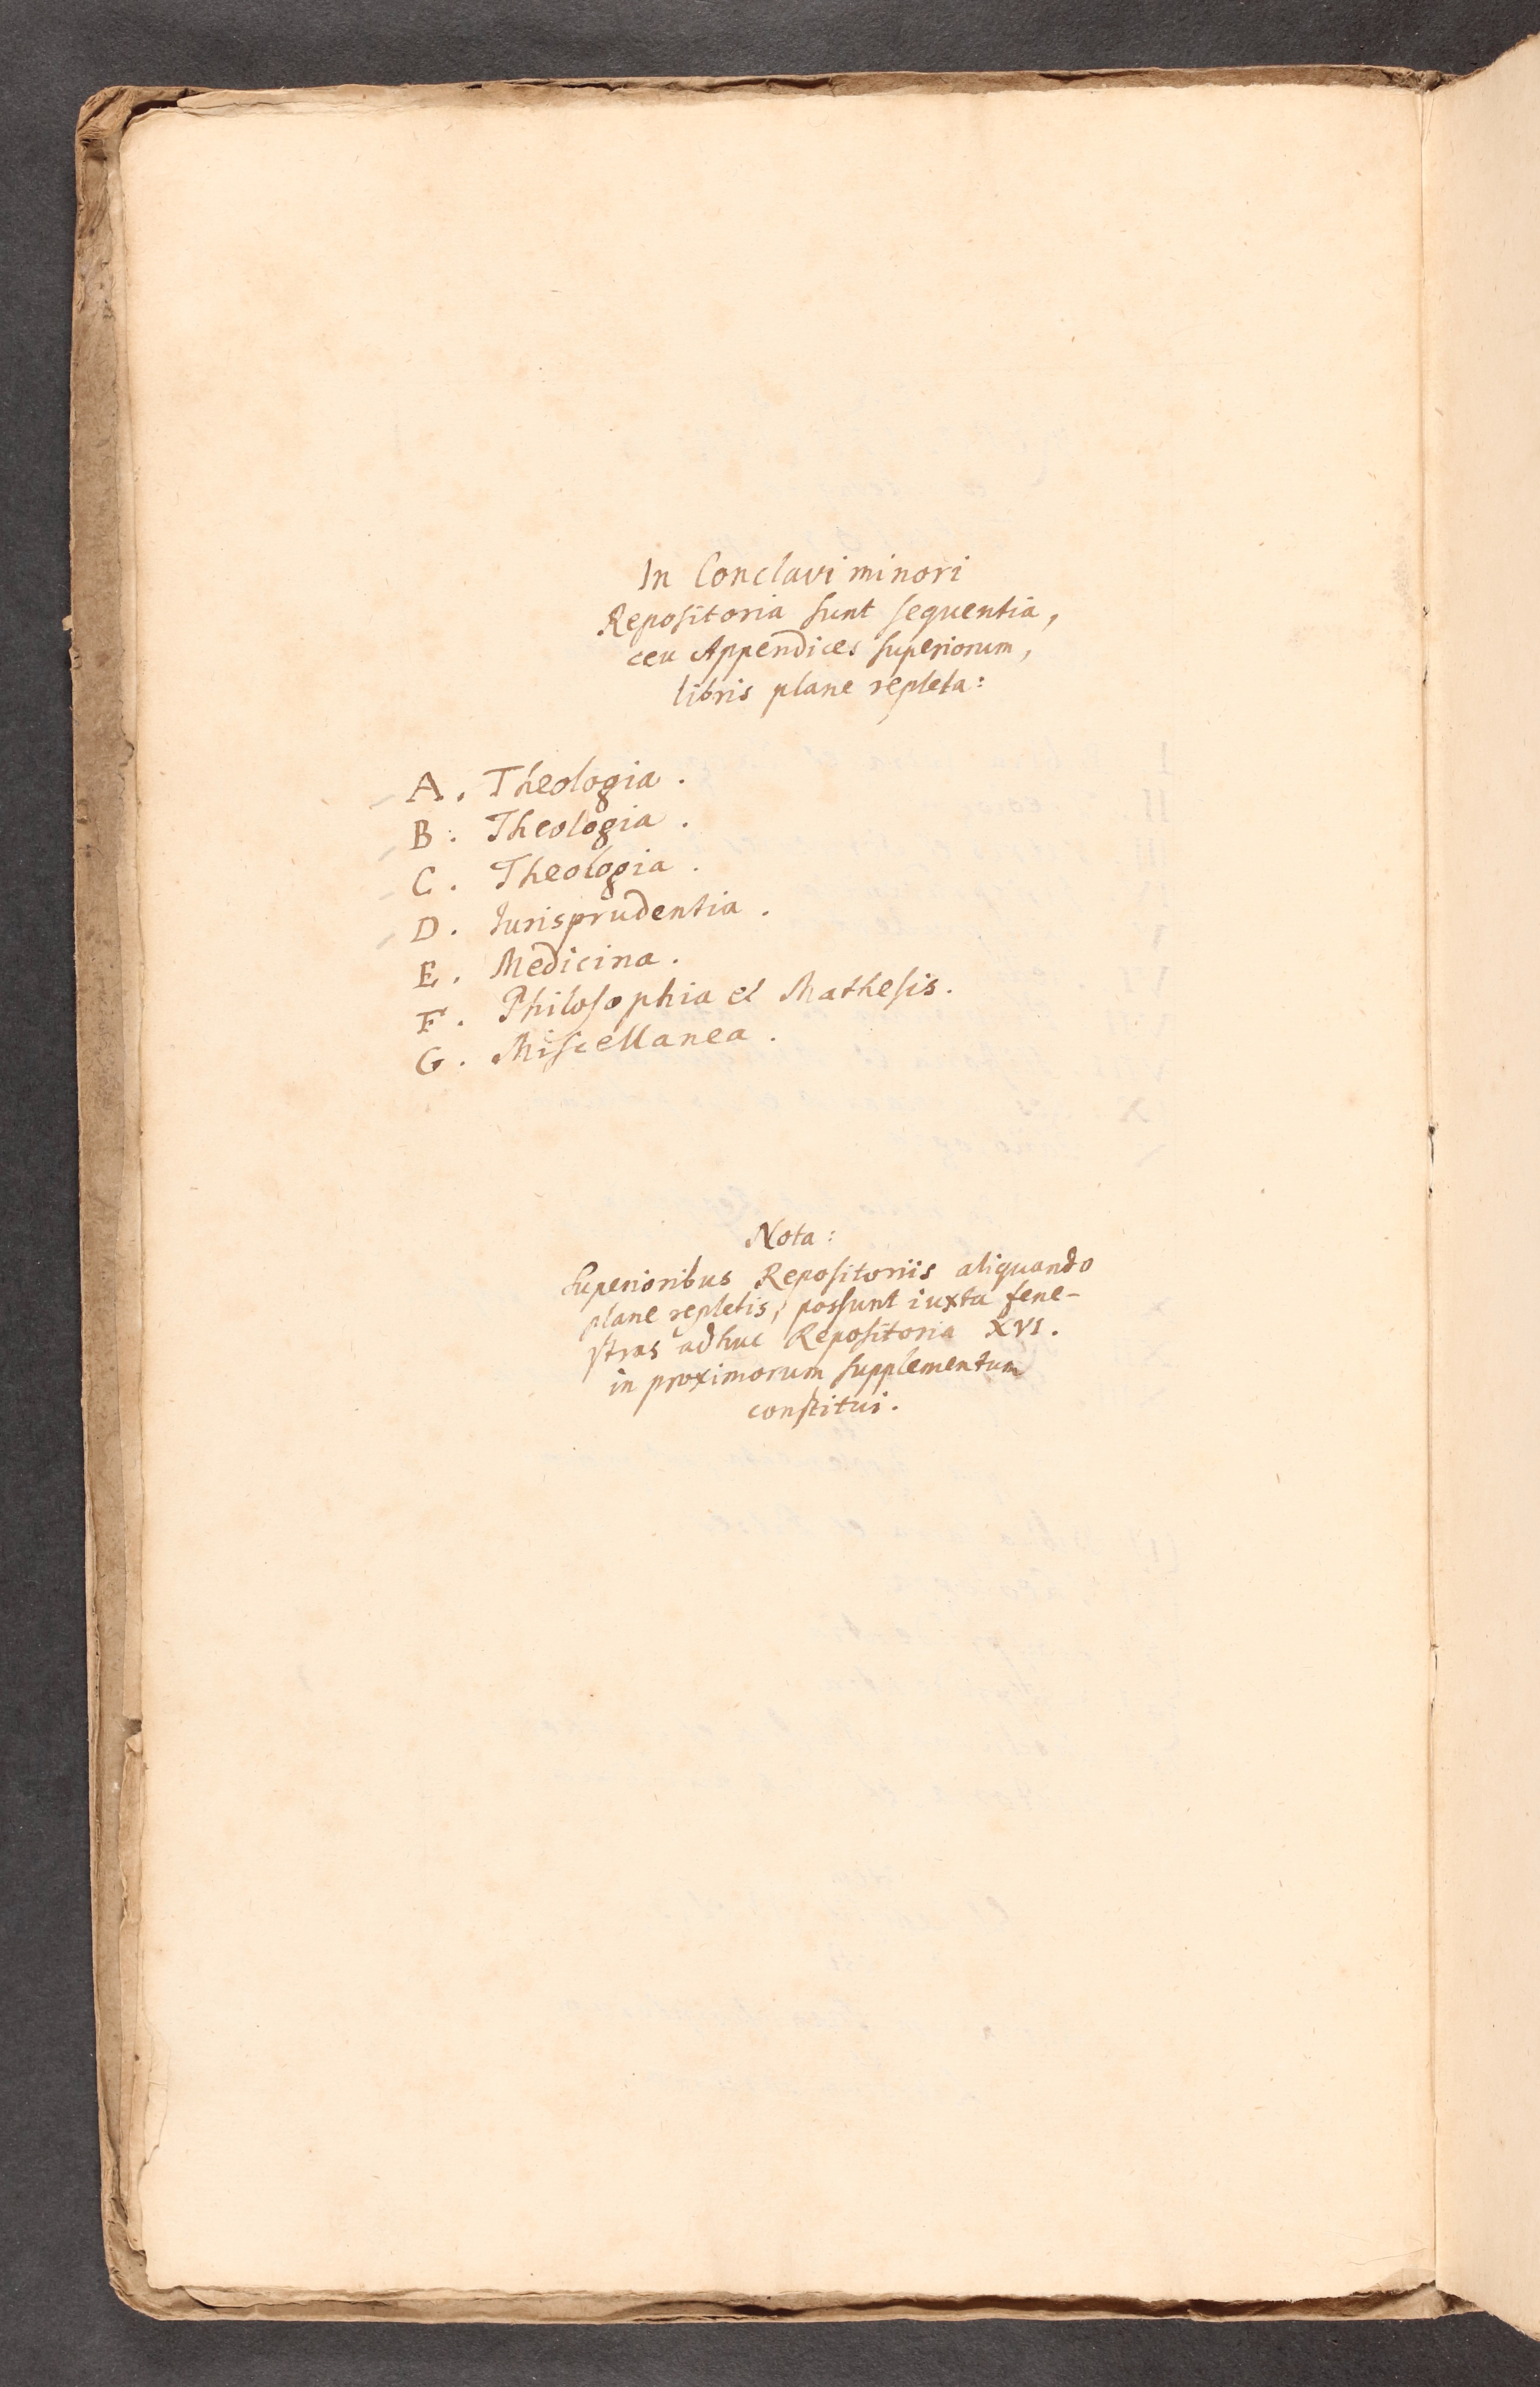 In Conclavi minori
Repositoria sunt sequentia,
ceu Appendices superiorum,
libris plane repleta:
A. Theologia.
B. Theologia.
C. Theologia.
D. Iurisprudentia.
E. Medicina.
F. Philosophia et Mathesis.
G. Miscellanea.
Nota:
Superioribus Repositoriis aliquando
plane repletis, possunt iuxta fene-
stras adhuc Repositoria XVI.
in proximorum supplementum
constitui.